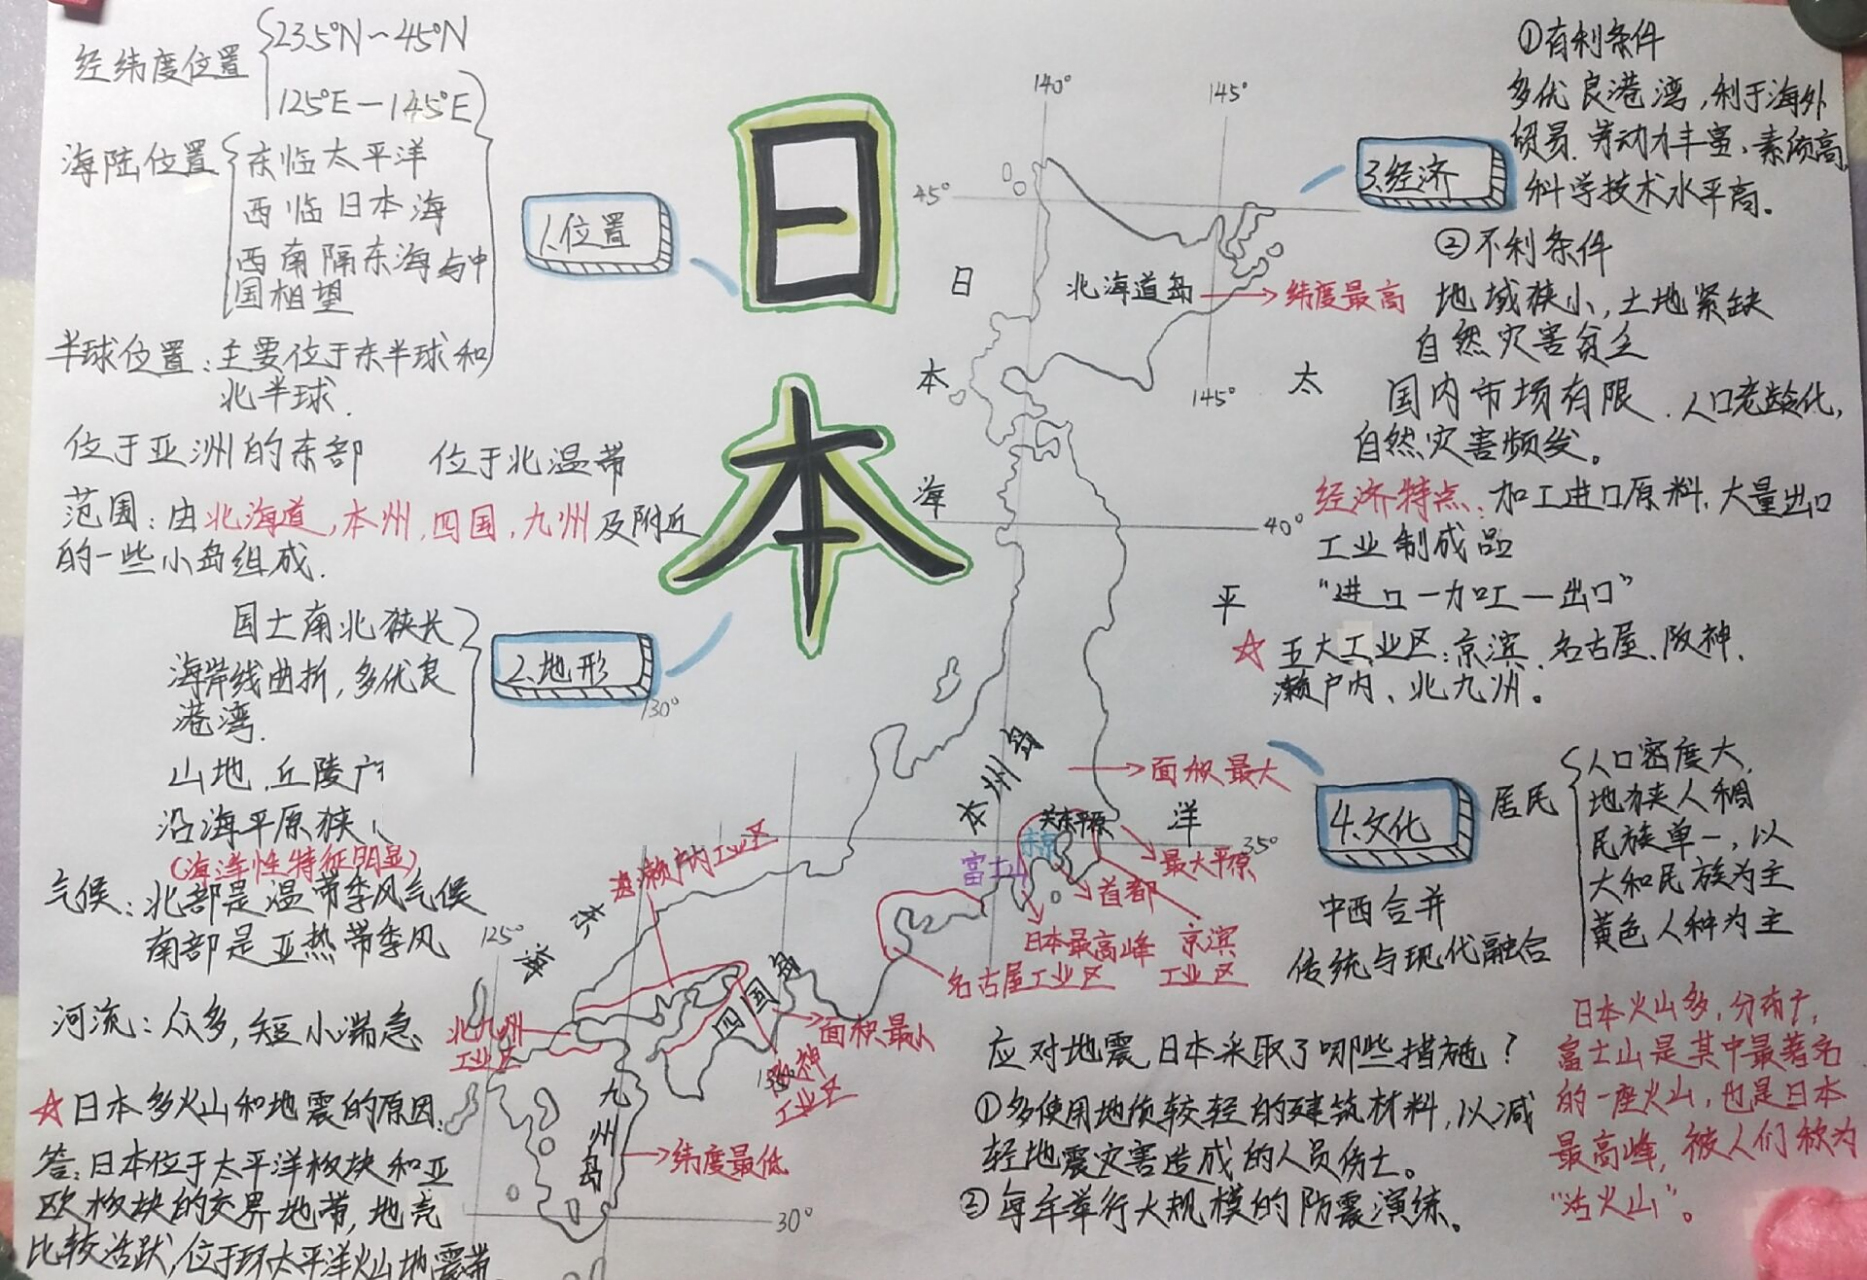 日本
1.位置
经纬度位置
23.5°N～45°N
125°E—145°E
海陆位置
东临太平洋
西临日本海
西南隔东海与中
国相望
半球位置：主要位于东半球和
北半球.
位于亚洲的东部 位于北温带
范围：由北海道,本州,四国,九州及附近
的一些小岛组成.
2.地形
国土南北狭长
海岸线曲折,多优良
港湾.
山地.丘陵广
沿海平原狭
(海洋性特征明显)
气候：北部是温带季风气候
南部是亚热带季风
河流：众多,短小湍急
☆日本多火山和地震的原因.
答:日本位于太平洋板块和亚
欧板块的交界地带,地壳
比较活跃,位于环太平洋火山地震带
140°
145°
45°
日
本
海
北海道岛
纬度最高
145°
太
平
洋
40°
130°
本州岛
面积最大
关东平原
东京
富士山
35°
最大平原
首都
日本最高峰
京滨
工业区
名古屋工业区
濑户内工业区
125°
东
海
四国岛
面积最小
北九州
工业区
神
工业区
九州岛
纬度最低
30°
3.经济
①有利条件
多优良港湾,利于海外
贸易.劳动力丰富、素质高
科学技术水平高。
②不利条件
地域狭小,土地紧缺
自然灾害贫乏
国内市场有限.人口老龄化,
自然灾害频发。
经济特点:加工进口原料,大量出口
工业制成品
“进口—加工—出口”
☆五大工业区:京滨、名古屋、阪神、
濑户内、北九州。
4.文化
居民
人口密度大,
地狭人稠
民族单一,以
大和民族为主
黄色人种为主
中西合并
传统与现代融合
应对地震日本采取了哪些措施？
①多使用地质较轻的建筑材料,以减
轻地震灾害造成的人员伤亡。
②每年举行大规模的防震演练。
日本火山多,分布广,
富士山是其中最著名
的一座火山,也是日本
最高峰,被人们称为
“活火山”。